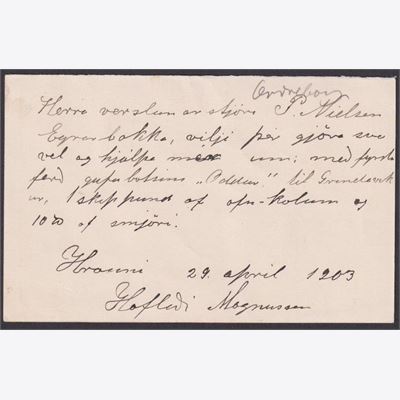 Herra verslunarstjóri P. Nielsen
Eyrarbakka, vilji þér gjöra svo
vel og hjálpa mér um; með fyrstu
ferð gufubátsins "Oddur" til Grindavík
ur, 1 skippund af ofn-kolum og
10 ℔ af smjöri.
Hrauni 29. april 1903
Hafliði Magnusson